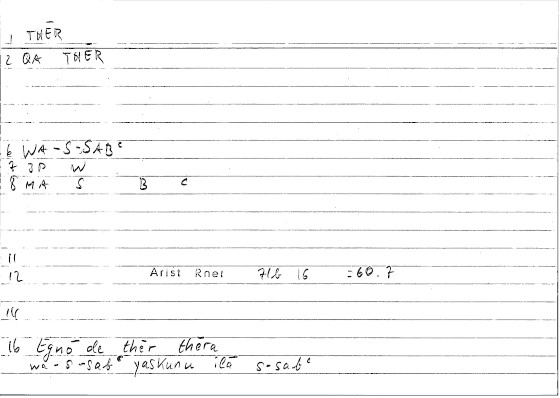 1 THĒR
2 QA THĒR
6 WA-S-SABʿ
7 JP W
8 MA S B ʿ
11
12 Arist Rhet 71b 16 =60.7
14
16 Egnō de thēr thēra
wa-s-sabʿ yaskunu ilā s-sabʿ